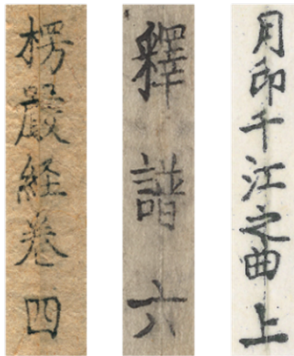 楞嚴経卷四
釋譜六
月印千江之曲上